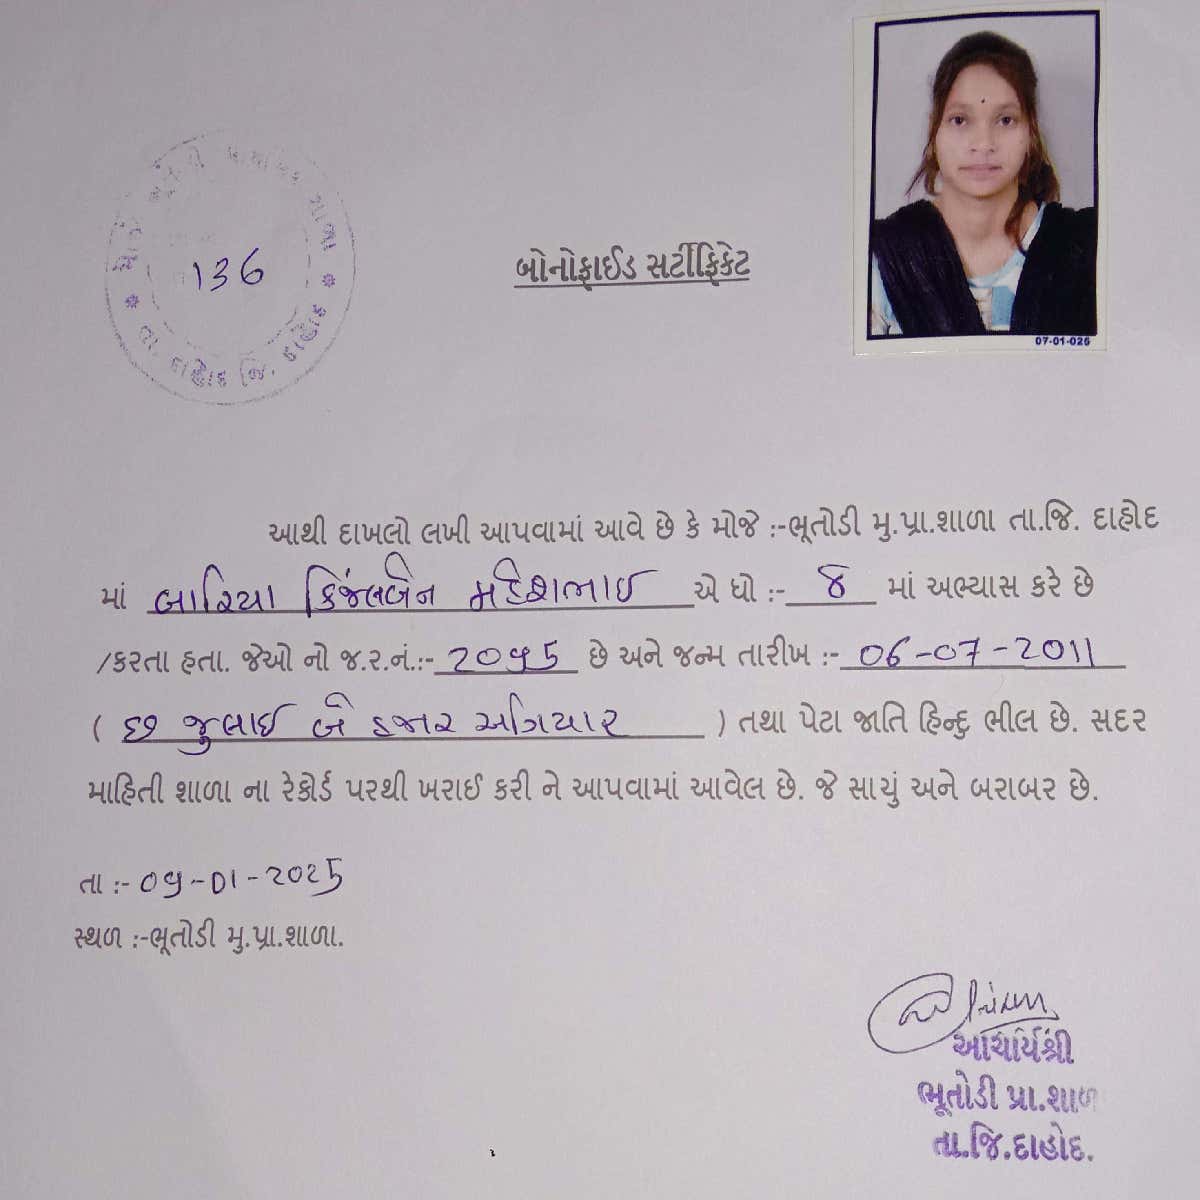 136
તા. દાહોદ જિ. દાહોદ
બોનોફાઈડ સર્ટીફિકેટ
07-01-026
આથી દાખલો લખી આપવામાં આવે છે કે મોજે :-ભૂતોડી મુ.પ્રા.શાળા તા.જિ. દાહોદ
માં બારિયા કિંજલબેન મહેશભાઈ એ ધો :- ૪ માં અભ્યાસ કરે છે
/કરતા હતા. જેઓ નો જ.ર.નં.:- 20૫5 છે અને જન્મ તારીખ :- 06-07-2011
( છઠ જુલાઈ બે હજાર અગિયાર ) તથા પેટા જાતિ હિન્દુ ભીલ છે. સદર
માહિતી શાળા ના રેકોર્ડ પરથી ખરાઈ કરી ને આપવામાં આવેલ છે. જે સાચું અને બરાબર છે.
તા :- 0૭-01-2025
સ્થળ :-ભૂતોડી મુ.પ્રા.શાળા.
આચાર્યશ્રી
ભૂતોડી પ્રા.શાળા
તા.જિ.દાહોદ.